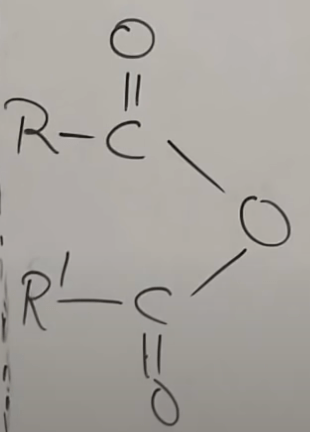 O
||
R-C
O
R'-C
||
O